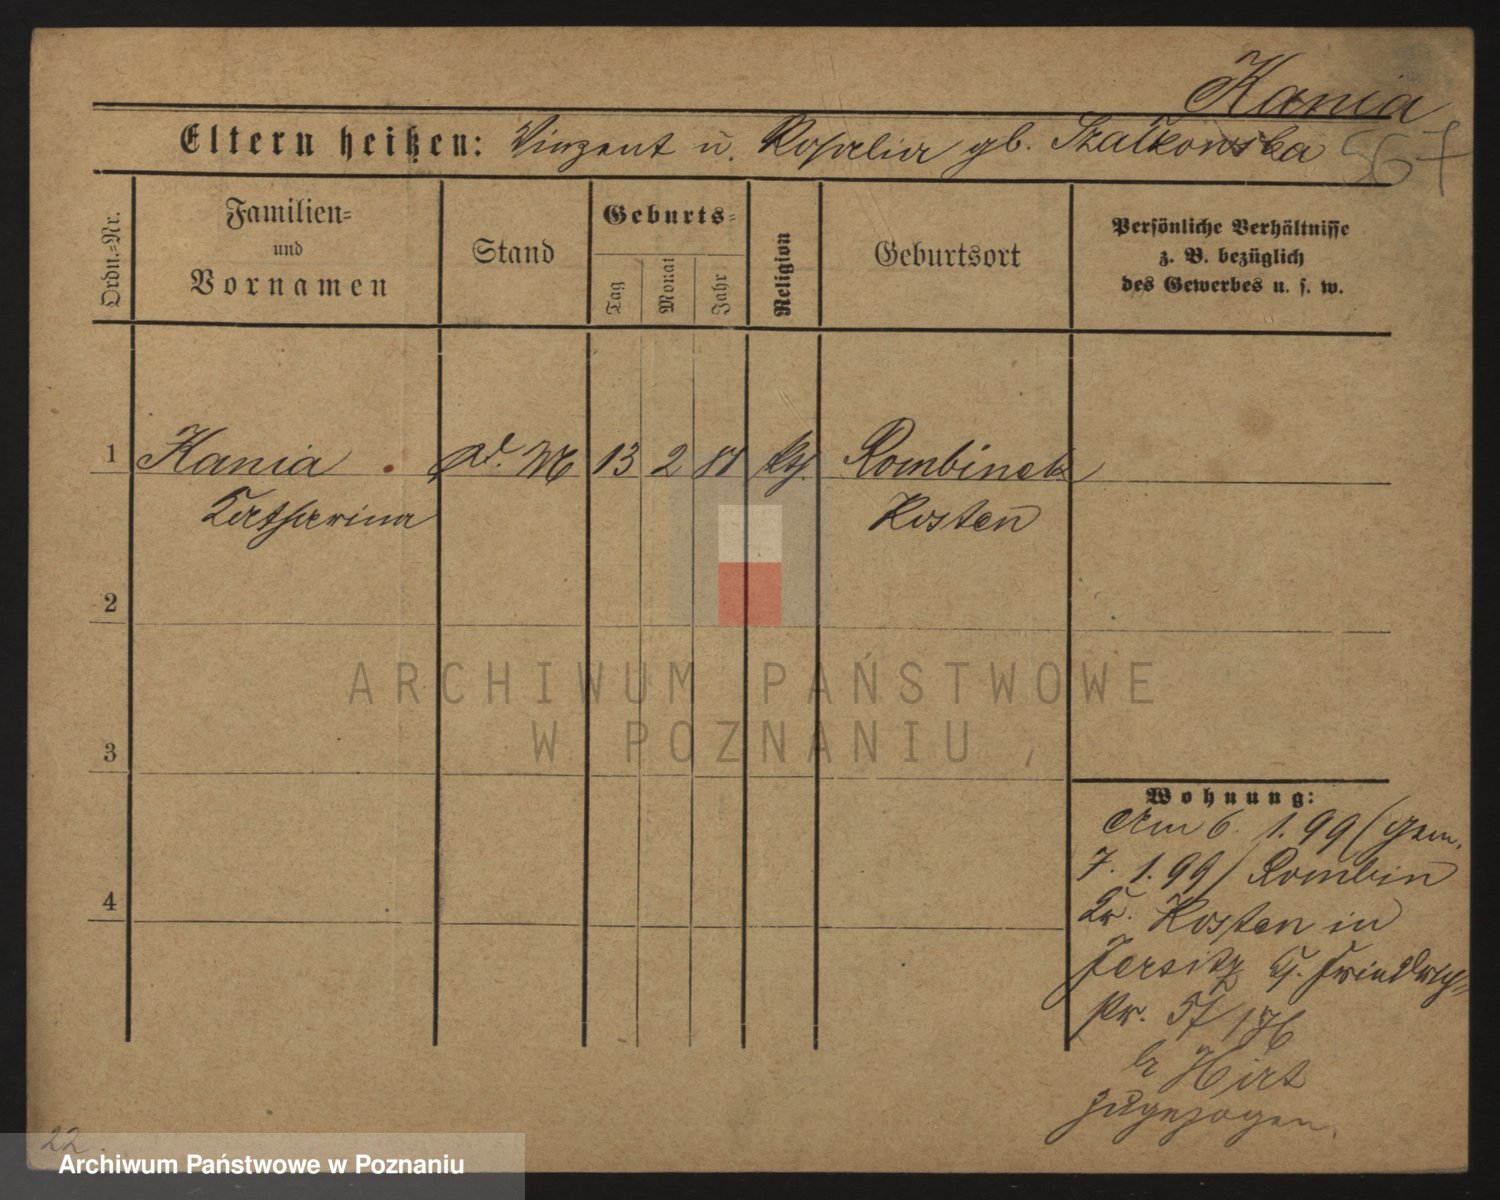 Kania
567
Eltern heißen: Vinzent u. Rosalia gb. Szalkowska
Ordn.-Nr.
Familien- und Vornamen
Stand
Geburts-
Tag
Monat
Jahr
Religion
Geburtsort
Persönliche Verhältnisse
z. B. bezüglich
des Gewerbes u. s. w.
1 Kania d. M 13 2 81 kth. Rombinek
Catharina Kosten
2
3
4
Wohnung:
Am 6. 1. 99 (gem.
7. 1. 99) Rombin
Kr. Kosten in
Jersitz Gr. Friedrich-
str. 57
b Hirt
zugezogen.
22.
ARCHIWUM PAŃSTWOWE
W POZNANIU ,
Archiwum Państwowe w Poznaniu